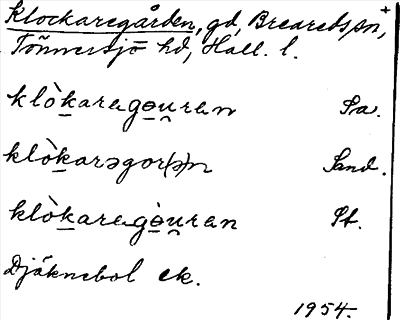 Klockaregården, gd, Breareds sn, +
Tönnersjö hd, Hall. l.
klòkaragəuran Sa.
klòkarəgor(ə)n Sand.
klòkaragə̀uran St.
Djäknebol ek.
1954.